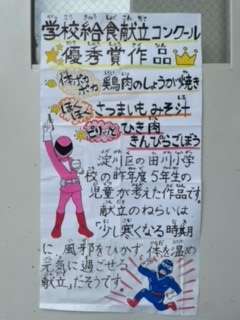 学校給食献立コンクール
優秀賞作品
体ポカポカ 鶏肉のしょうが焼き
ほくほく さつまいもみそ汁
ピリッと ひき肉
きんぴらごぼう
淀川区の田川小学
校の昨年度5年生の
児童が考えた作品です。
献立のねらいは
「少し寒くなる時期
に、風邪をひかず、体を温め
元気に過ごせる
献立」だそうです。